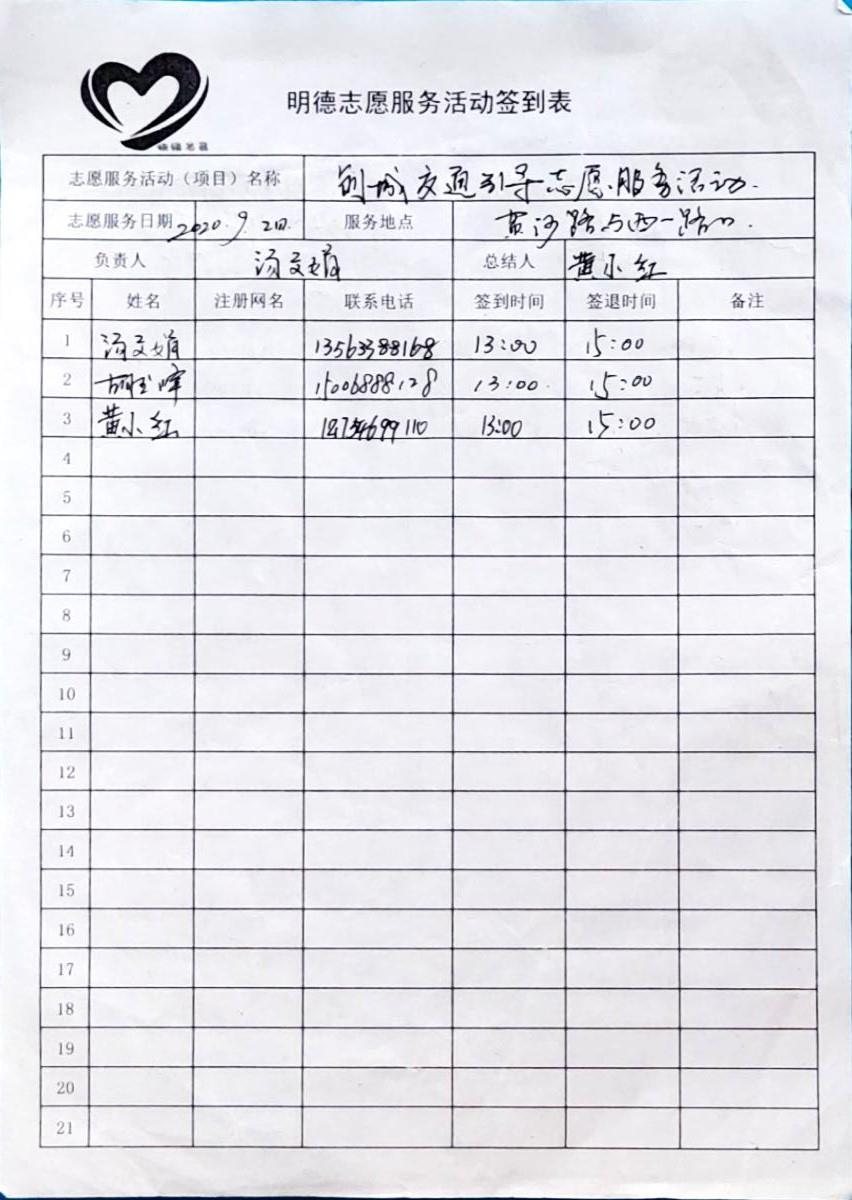 明德志愿服务活动签到表
志愿服务活动（项目）名称 创城交通引导志愿服务活动.
志愿服务日期 2020.9.2日. 服务地点 黄河路与西一路口.
负责人 汤文娟 总结人 黄小红
序号 姓名 注册网名 联系电话 签到时间 签退时间 备注
1 汤文娟 13563388168 13:00 15:00
2 15006888128 13:00 15:00
3 黄小红 13:00 15:00
4
5
6
7
8
9
10
11
12
13
14
15
16
17
18
19
20
21